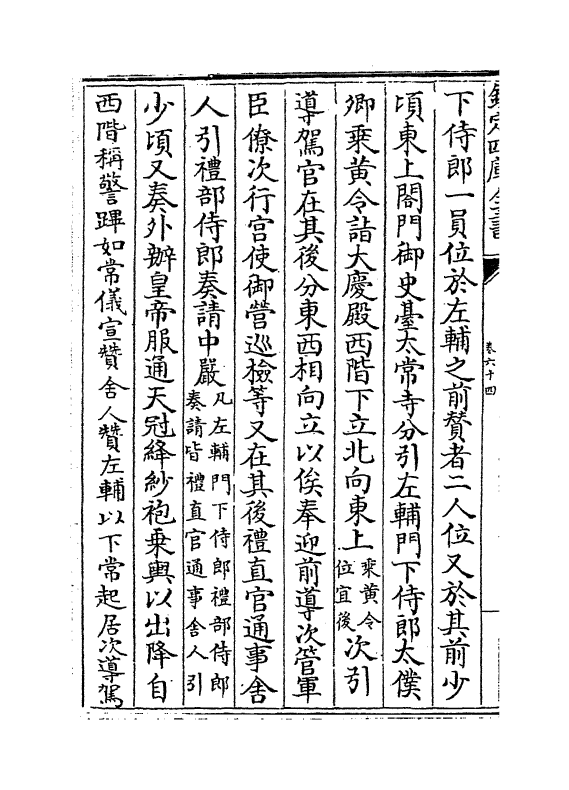 欽定四庫全書
卷六十四
下侍郎一員位於左輔之前賛者二人位又於其前少
頃東上閤門御史臺太常寺分引左輔門下侍郎太僕
卿乗黄令詣大慶殿西階下立北向東上乗黄令位宜後次引
導駕官在其後分東西相向立以俟奉迎前導次管軍
臣僚次行宫使御營巡檢等又在其後禮直官通事舍
人引禮部侍郎奏請中嚴凡左輔門下侍郎禮部侍郎奏請皆禮直官通事舍人引
少頃又奏外辦皇帝服通天冠絳紗袍乗輿以出降自
西階稱警蹕如常儀宣贊舍人贊左輔以下常起居次導駕